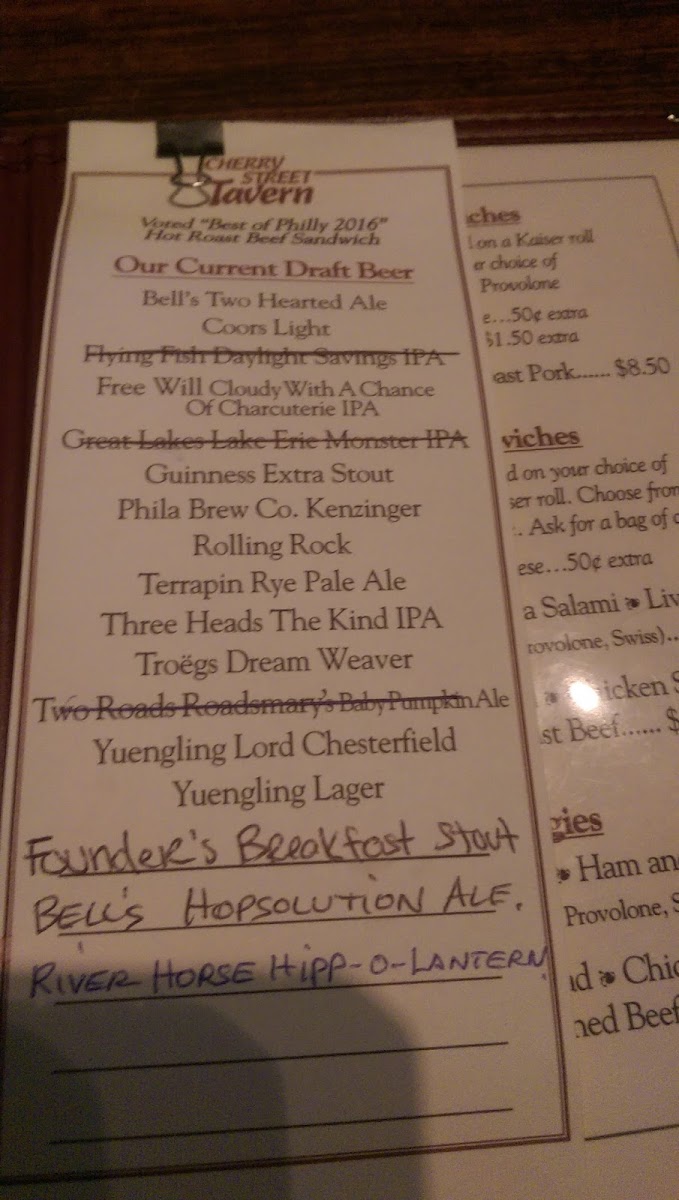 CHERRY
STREET
Tavern
Voted "Best of Philly 2016"
Hot Roast Beef Sandwich
Our Current Draft Beer
Bell's Two Hearted Ale
Coors Light
Flying Fish Daylight Savings IPA
Free Will Cloudy With A Chance
Of Charcuterie IPA
Great Lakes Lake Erie Monster IPA
Guinness Extra Stout
Phila Brew Co. Kenzinger
Rolling Rock
Terrapin Rye Pale Ale
Three Heads The Kind IPA
Troëgs Dream Weaver
Two Roads Roadsmary's Baby Pumpkin Ale
Yuengling Lord Chesterfield
Yuengling Lager
Founder's Breakfast Stout
BELL'S HOPSOLUTION ALE.
RIVER HORSE HIPP-O-LANTERN
ches
on a Kaiser roll
er choice of
Provolone
e...50¢ extra
$1.50 extra
ast Pork...... $8.50
viches
d on your choice of
ser roll. Choose from
:. Ask for a bag of
ese...50¢ extra
a Salami ❧ Liv
rovolone, Swiss)..
❧ Chicken S
st Beef...... $
gies
❧ Ham an
Provolone, S
d ❧ Chic
ned Beef